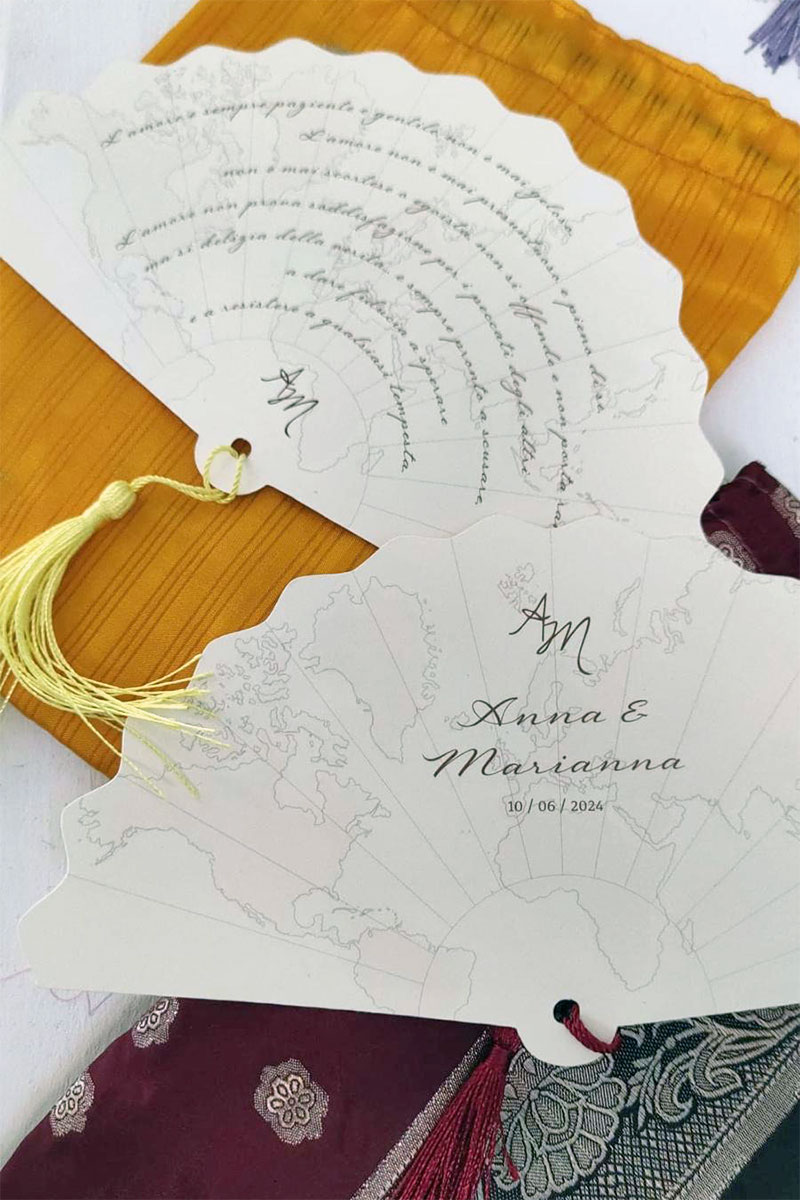 L'amore è sempre paziente e gentile, non è mai geloso
L'amore non è mai presuntuoso o pieno di sé
non è mai scortese o egoista non si offende e non porta
L'amore non prova soddisfazione per i peccati degli altri
ma si delizia della verità. è sempre pronto a scusare
a dare fiducia a sperare
e a resistere a qualsiasi tempesta
AM
AM
Anna &
Marianna
10 / 06 / 2024